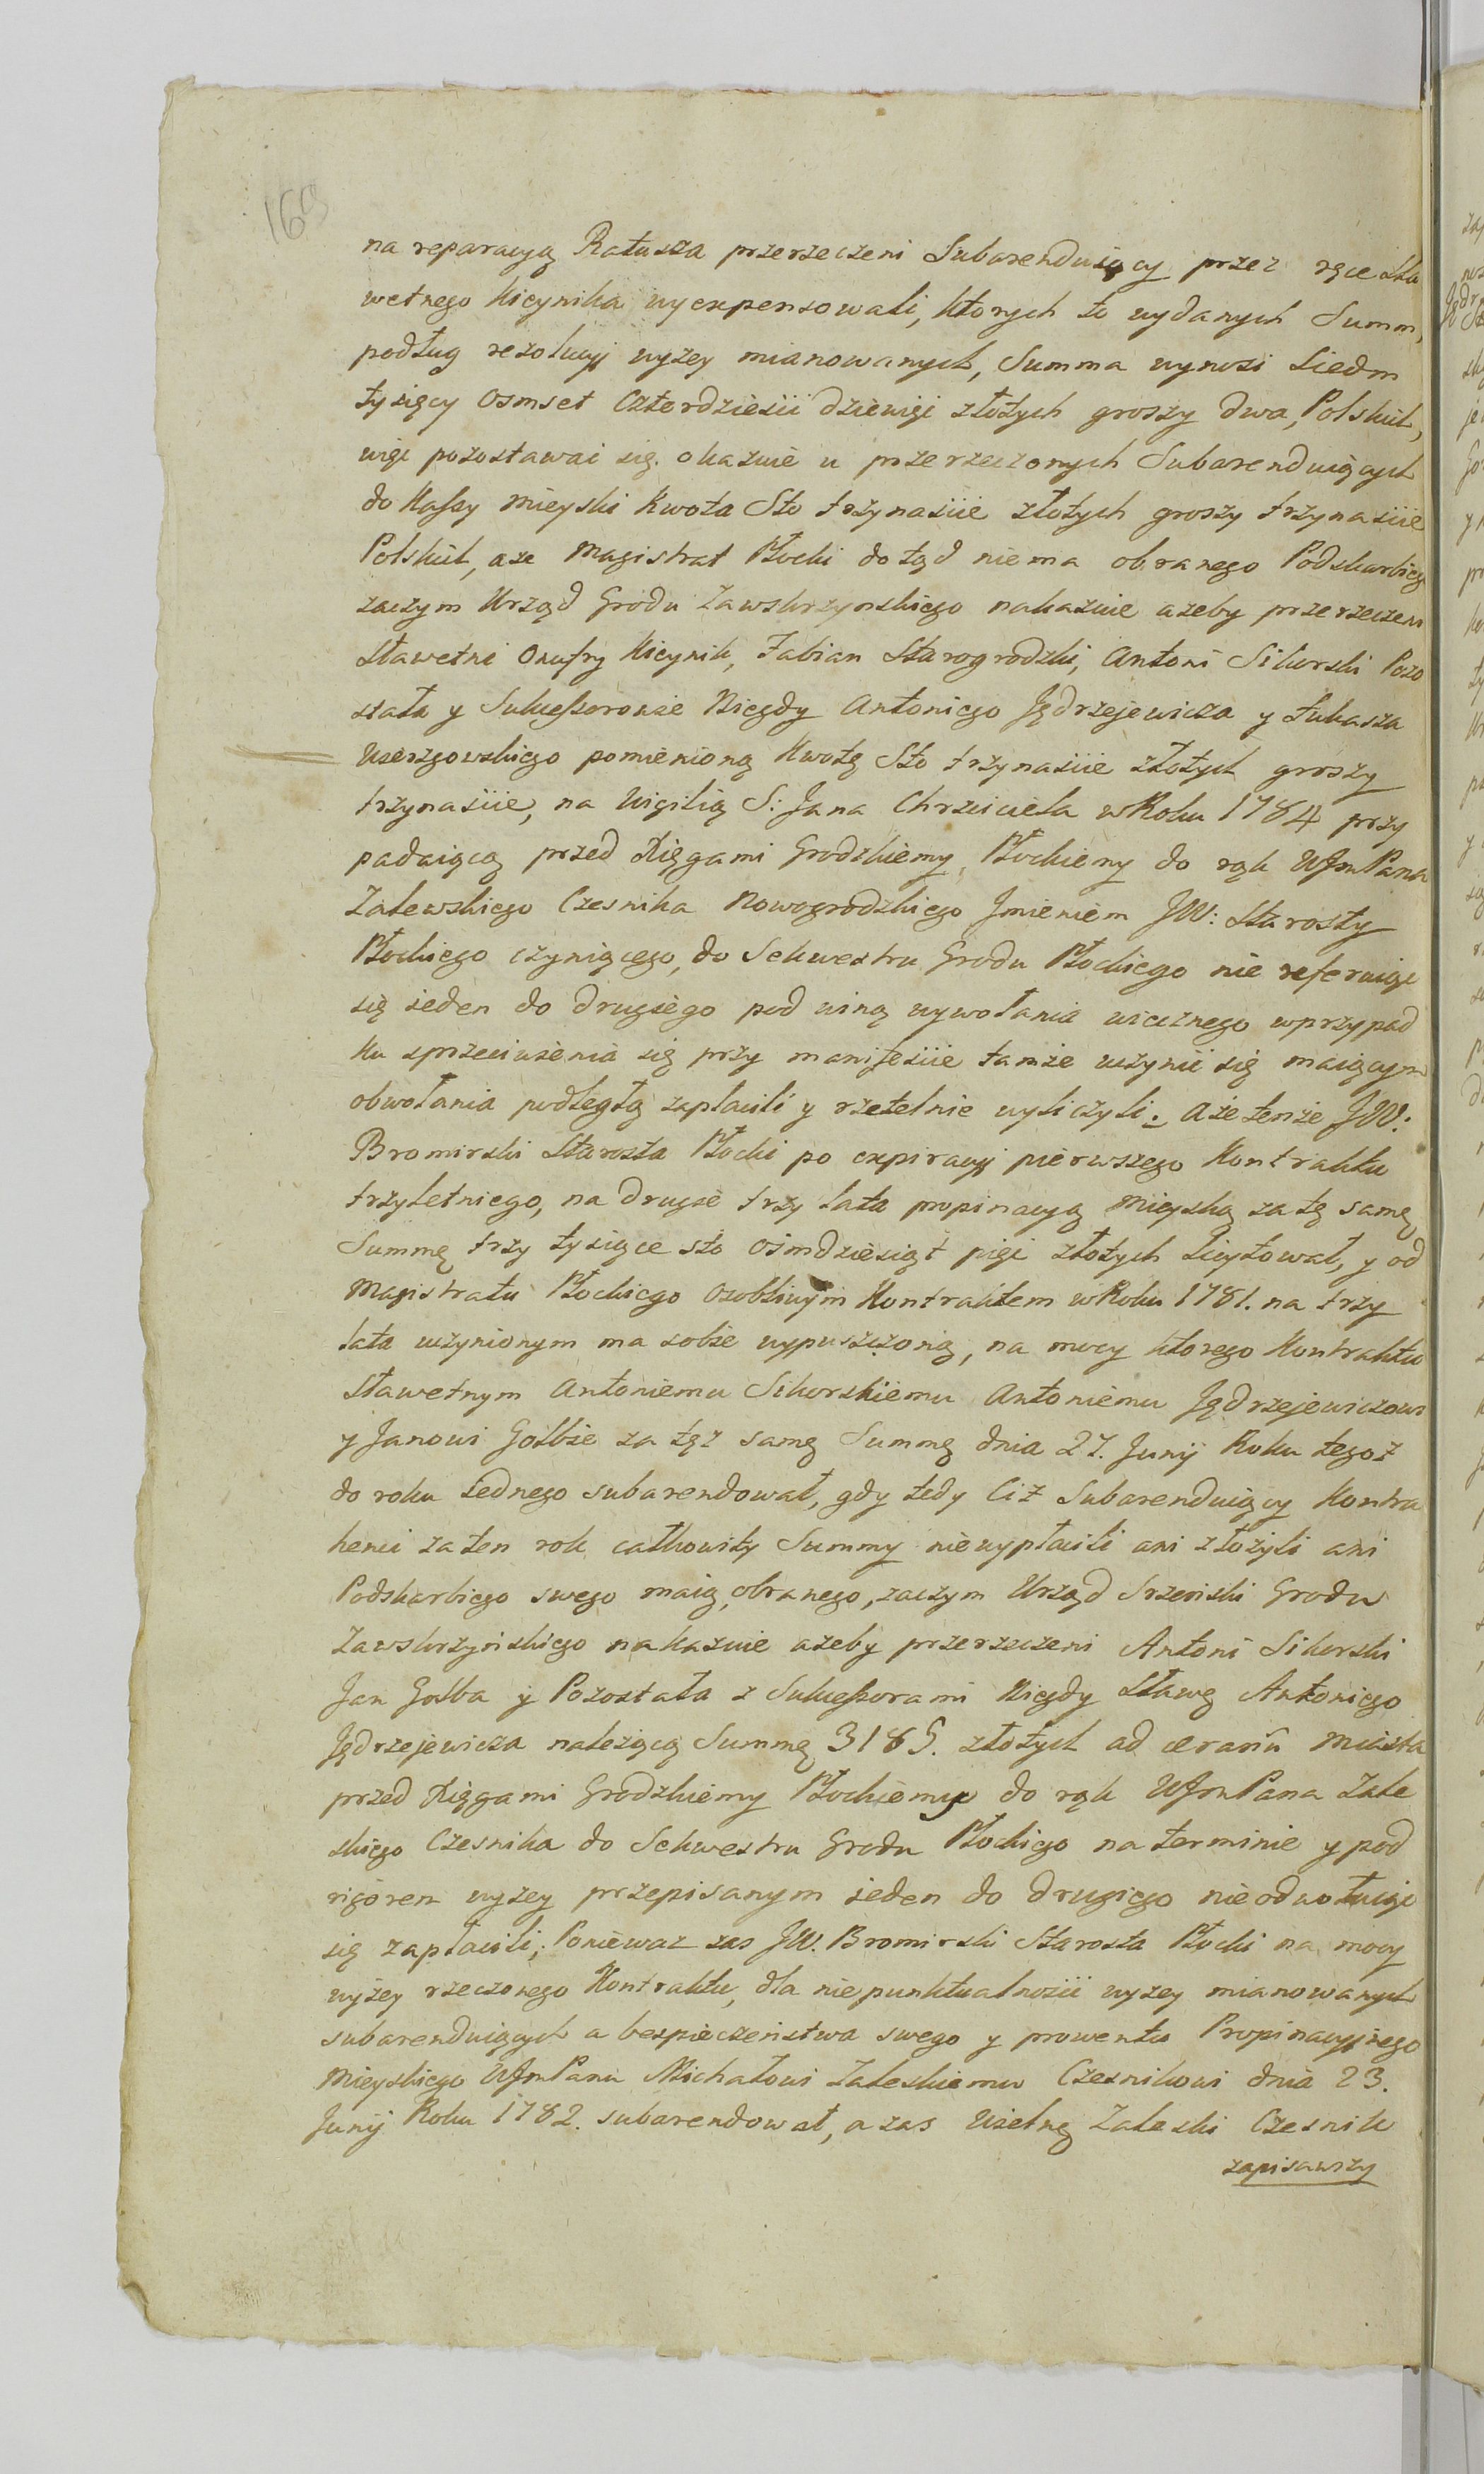 169
na reparacyą Ratusza przerzeczeni Subarenduiący przez ręce Sła
wetnego Kicynika wyexpensowali, ktorych to wydanych Summ,
podług rezolucyi wyzey mianowanych, Summa wynosi Siedm
tysięcy Osmset Czterdziesci dziewięc złotych groszy dwa, Polskich,
więc pozostawac się okazuie u przerzeczonych Subarenduiących
do Kassy Mieyski kwota Sto trzynascie złotych groszy trzynascie
Polskich, a ze Magistrat Płocki dotąd niema obranego Podskarbieg
zaczym Urząd Grodu Zawskrzynskiego nakazuie azeby przerzeczeni
Sławetni Onufry Kicynik, Fabian Starogrodzki, Antoni Sikorski Pozo
stała y Sukcessorowie Niegdy Antoniego Jędrzejewicza y Łukasza
pomienioną kwotę Sto trzynascie złotych groszy
trzynascie, na Wigilią S: Jana Chrzciciela w Roku 1784 przy
padaiącą przed Xięgami Grodzkiemy Płockiemy do rąk WJm Pana
Zalewskiego Czesnika Nowogrodzkiego Jmieniem JW: Starosty
Płockiego czyniącego, do Sekwestru Grodu Płockiego nie referuiąc
się ieden do drugiego pod winą wywołania wiecznego w przypad
ku sprzeciwienia się przy manifescie tamże uczynic się maiącym
obwołania podległą zapłacili y rzetelnie wyliczyli. Aże tenże JW:
Bromirski Starosta Płocki po expiracyi pierwszego Kontraktu
trzyletniego, na drugie trzy lata propinacyą Mieyską za tę samę
Summę trzy tysiące sto ośmdziesiąt pięc złotych licytował, y od
Magistratu Płockiego osobliwym Kontraktem w Roku 1781. na trzy
lata uczynionym ma sobie wypuszczoną, na mocy ktorego Kontraktu
Sławetnym Antoniemu Sikorskiemu Antoniemu Jędrzejewiczowi
y Janowi Gołbie za tęż samę Summę dnia 27. Junij Roku tegoż
do roku Jednego subarendował, gdy tedy Ciż Subarenduiący Kontra
henci za ten rok całkowity Summy niewypłacili ani złożyli ani
Podskarbiego swego maią obranego, zaczym Urząd Srzeński Grodu
Zawskrzyńskiego nakazuie ażeby przerzeczeni Antoni Sikorski
Jan Gołba y Pozostała z Sukcessorami Niegdy Sławę Antoniego
Jędrzejewicza należącą Summę 3185. złotych ad ærariũ Miasta
przed Xięgami Grodzkiemy Płockiemy do rąk WJm Pana Zale
skiego Czesnika do Sekwestru Grodu Płockiego na terminie y pod
rigorem wyzey przepisanym ieden do drugiego nieodwołuiąc
się zapłacili; Poniewaz zas JW. Bromirski Starosta Płocki na mocy
wyżey rzeczonego Kontraktu, dla niepunktualnosci wyzey mianowanych
subarenduiących a bezpieczeństwa swego y prowentu Propinacyinego
Mieyskiego WJm Panu Michałowi Zaleskiemu Czesnikowi dnia 23.
Junij Roku 1782. subarendował, a zas Zaleski Czesnik
zapisawszy